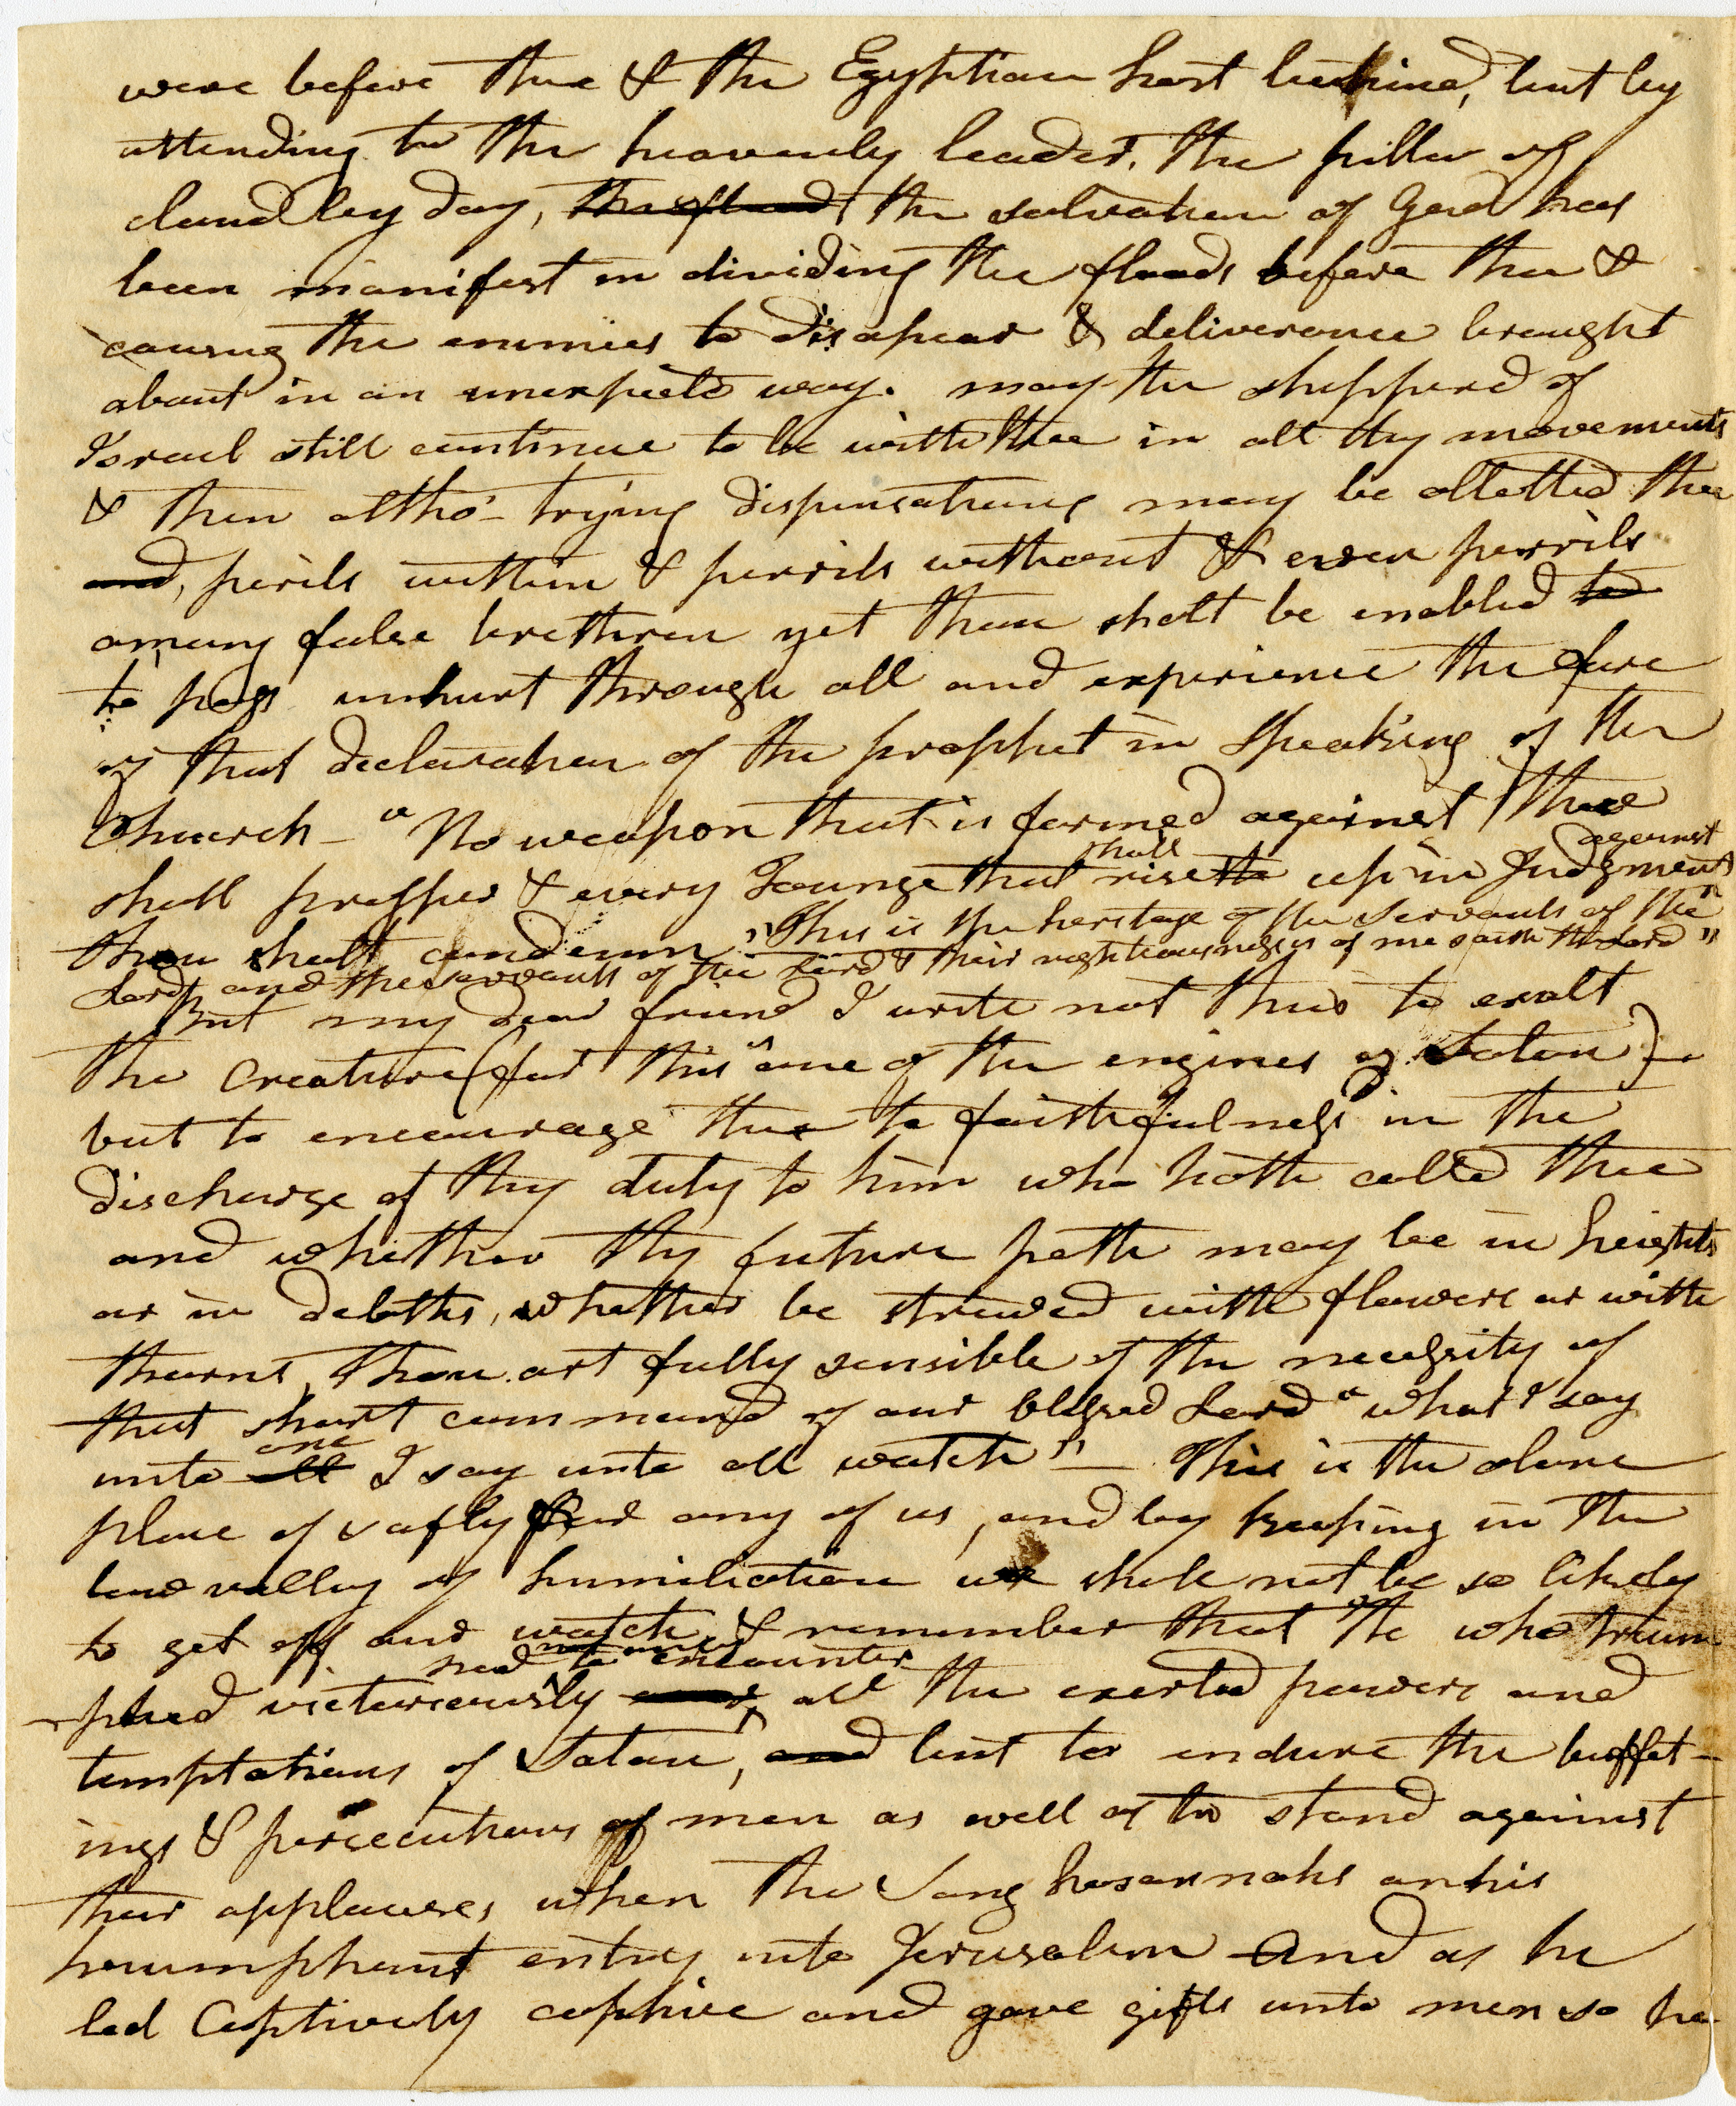 were before thee & the Egyptian host behind, but by
attending to the heavenly leader, the piller of
cloud by day, the flood the salvation of God has
been manifest in dividing the floods before thee &
causing the enimies to disapear & deliverance brought
about in an unexpected way. may the shepperd of
Israel still continue to be with thee in all thy movements
& then altho' trying dispensations may be allotted thee
and, perils within & perrils without & even perrils
among false brethren yet thou shalt be enabled to
to pass unhurt through all and experience the force
of that declaration of the prophet in speaking of the
Church - "No weapon that is formed against thee
against
shall
shall prosper & every Tounge that rise up in Judgment
thou shalt condemn, "This is the heritage of the servants of the
Lord, and the servants of the Lord & their righteousness is of me saith the Lord"
But my dear friend I write not this to exalt
the Creature (for this is one of the engines of Satan)
but to encourage thee to faithfulness in the
discharge of thy duty to him who hath called thee
and whether thy future path may be in heights
or in debths, whether be strewed with flowers or with
thorns, thou art fully sensible of the necessity of
that short command of our blessed Lord "what I say
one
unto all I say unto all watch" - This is the alone
place of safty for any of us, and by keeping in the
low valley of humiliation we shall not be so likely
to get off our watch & remember that He who trium
had not only to encounter
phed victoriously over all the exerted powers and
temptations of Satan, and but to endure the buffet-
ings & persecutions of men as well as to stand against
their applauses when the sang hosannahs on his
triumphant entry into Jerusalem And as he
led Captivety captive and gave gifts unto men so he